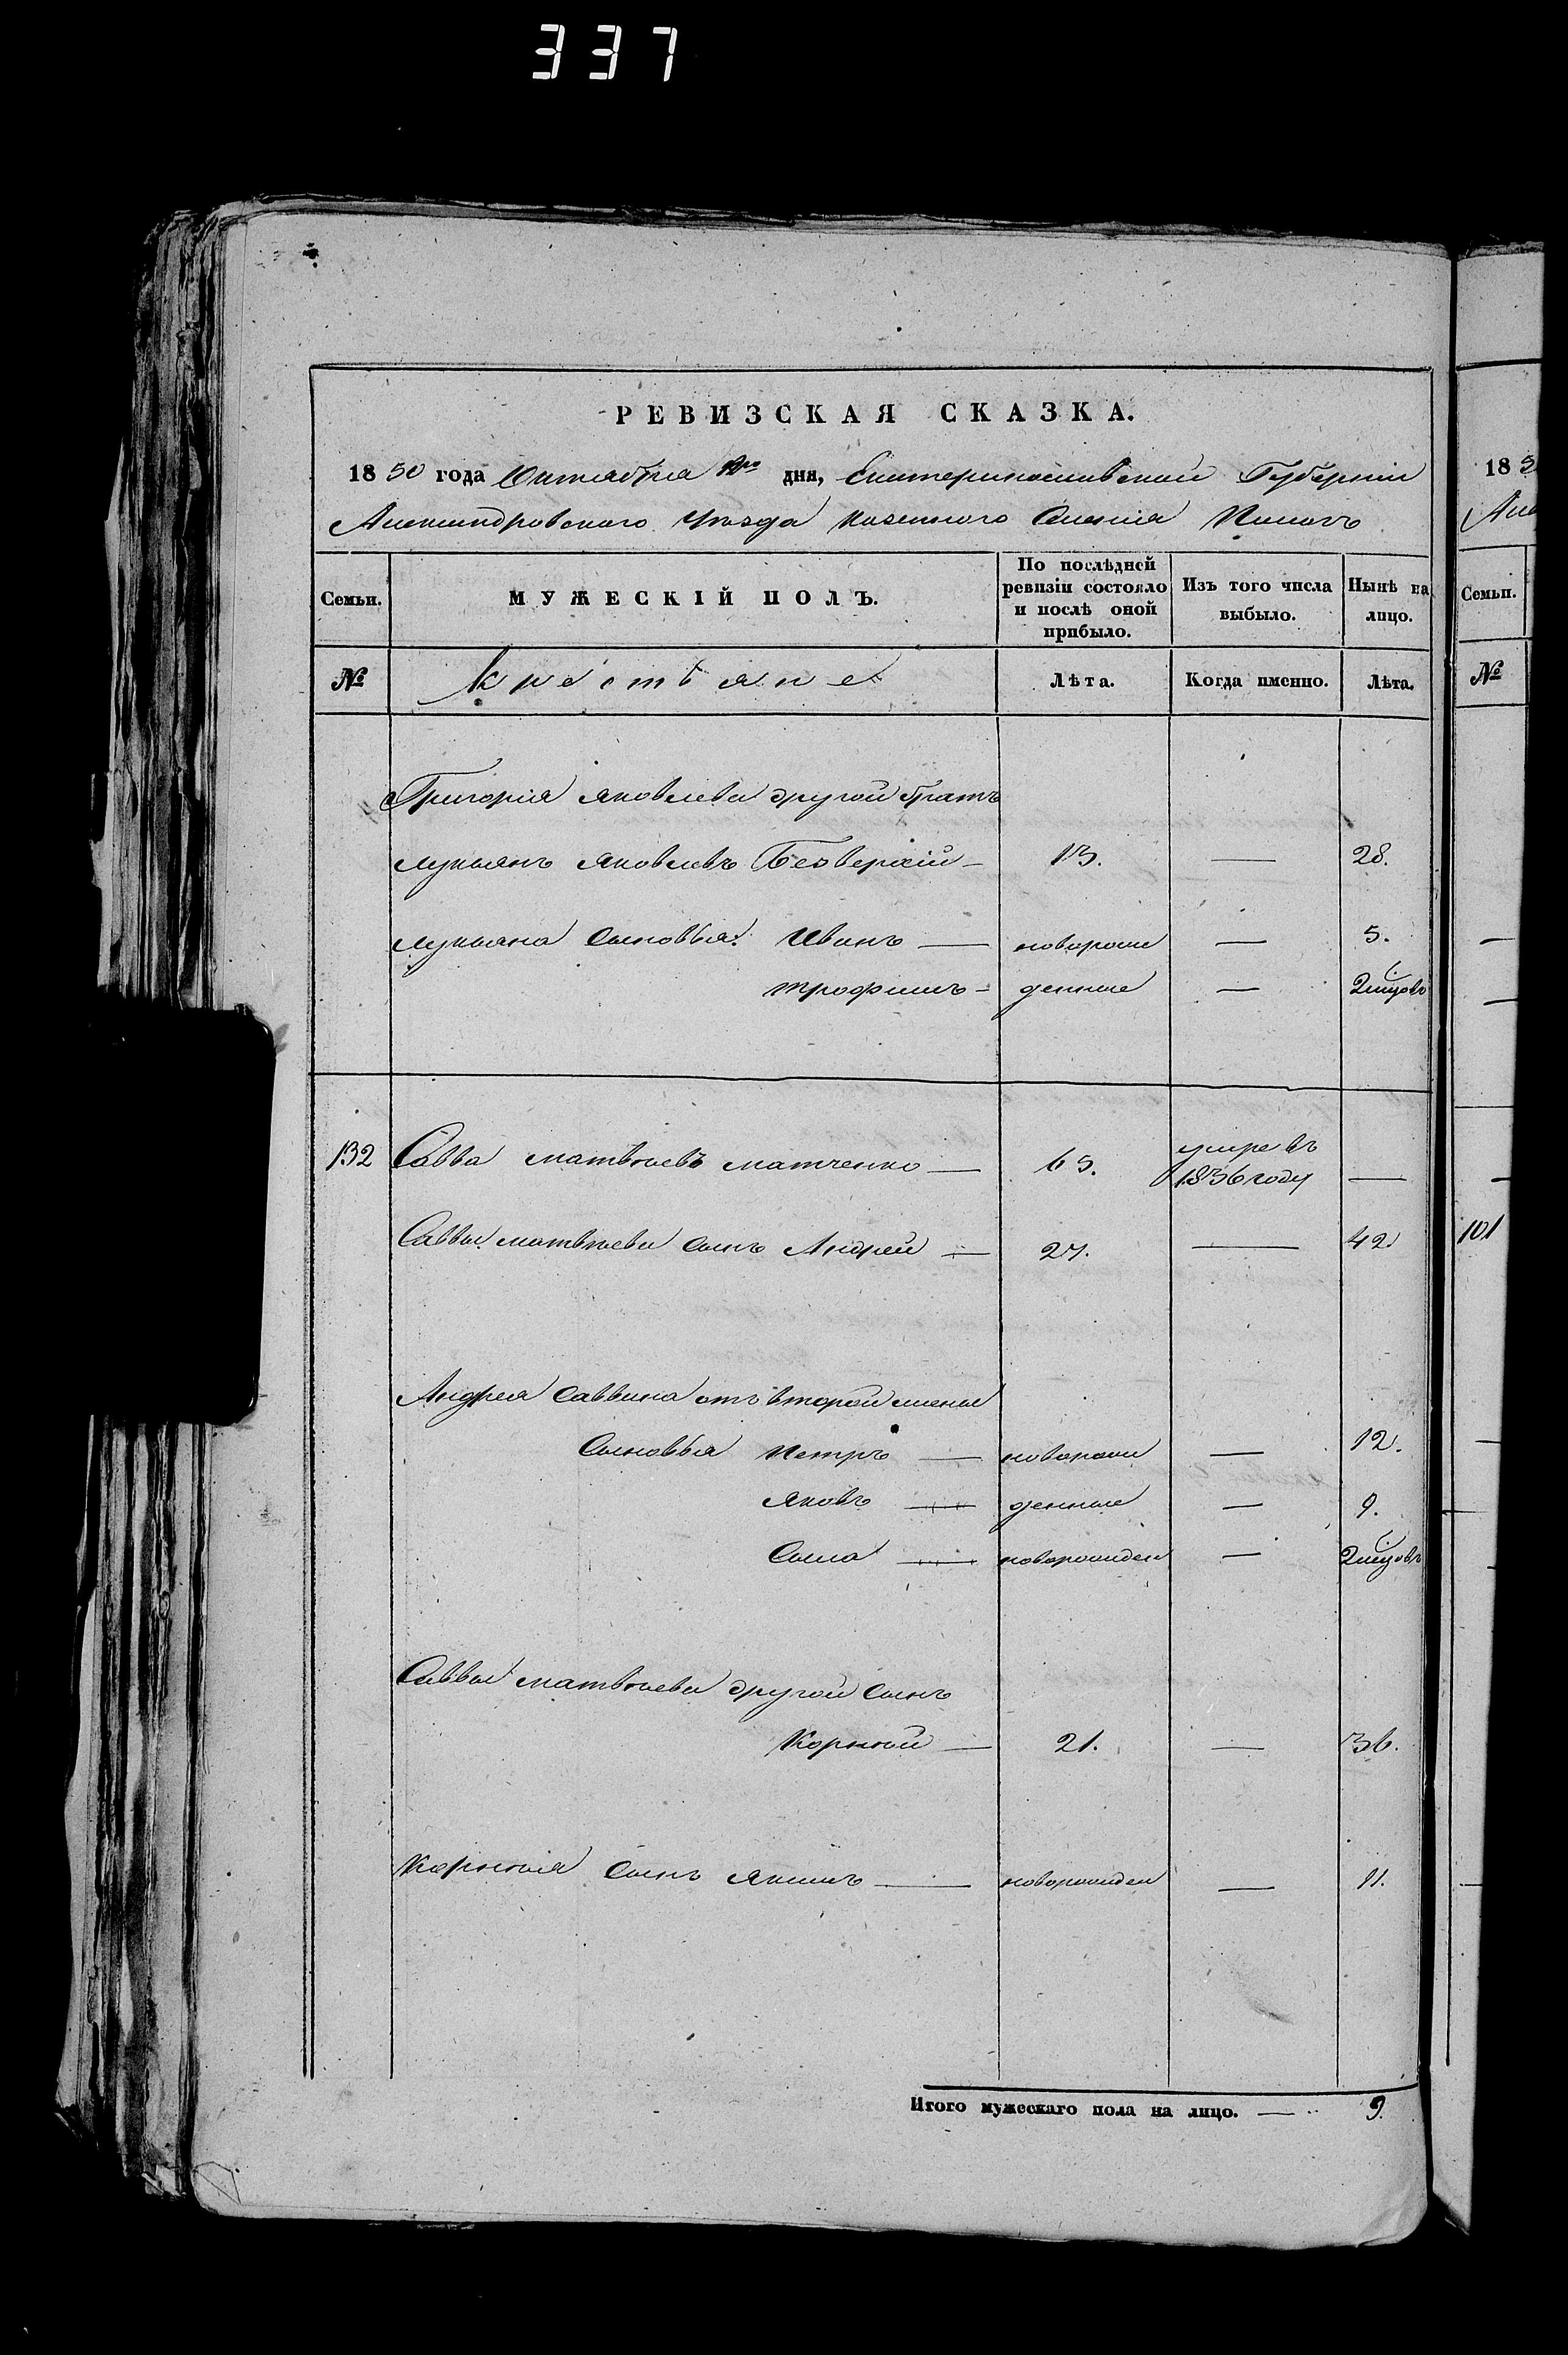 337
РЕВИЗСКАЯ СКАЗКА.
1850 года Октября дня, Екатеринославской Губернии
Александровского Уезда казенного Селения
Семьи. МУЖЕСКІЙ ПОЛЪ. По послѣдней ревизіи состояло и послѣ оной прибыло. Изъ того числа выбыло. Нынѣ на лицо.
№ Крестьяне Лѣта. Когда именно. Лѣта.
Григорія Яковлева другой братъ
Лукьянъ Яковлевъ Безверхій — 13. — 28.
Лукьяна Сыновья: Иванъ — новорож — 5.
Трофимъ — денные — 2 мцовъ
132 Савва Матвѣевъ Матченко — 65. умре въ 1836 году —
Саввы Матвѣева Сынъ Андрей — 27. — 42
Андрея Саввина отъ второй жены
Сыновья Петръ — новорож — 12.
Яковъ — денные — 9.
новорожден — 2 мцовъ
Саввы Матвѣева другой Сынъ
Корней — 21. — 36.
Корнея Сынъ Якимъ — новорожден — 11.
Итого мужескаго пола на лицо. — 9.
185
Семьи.
№
101